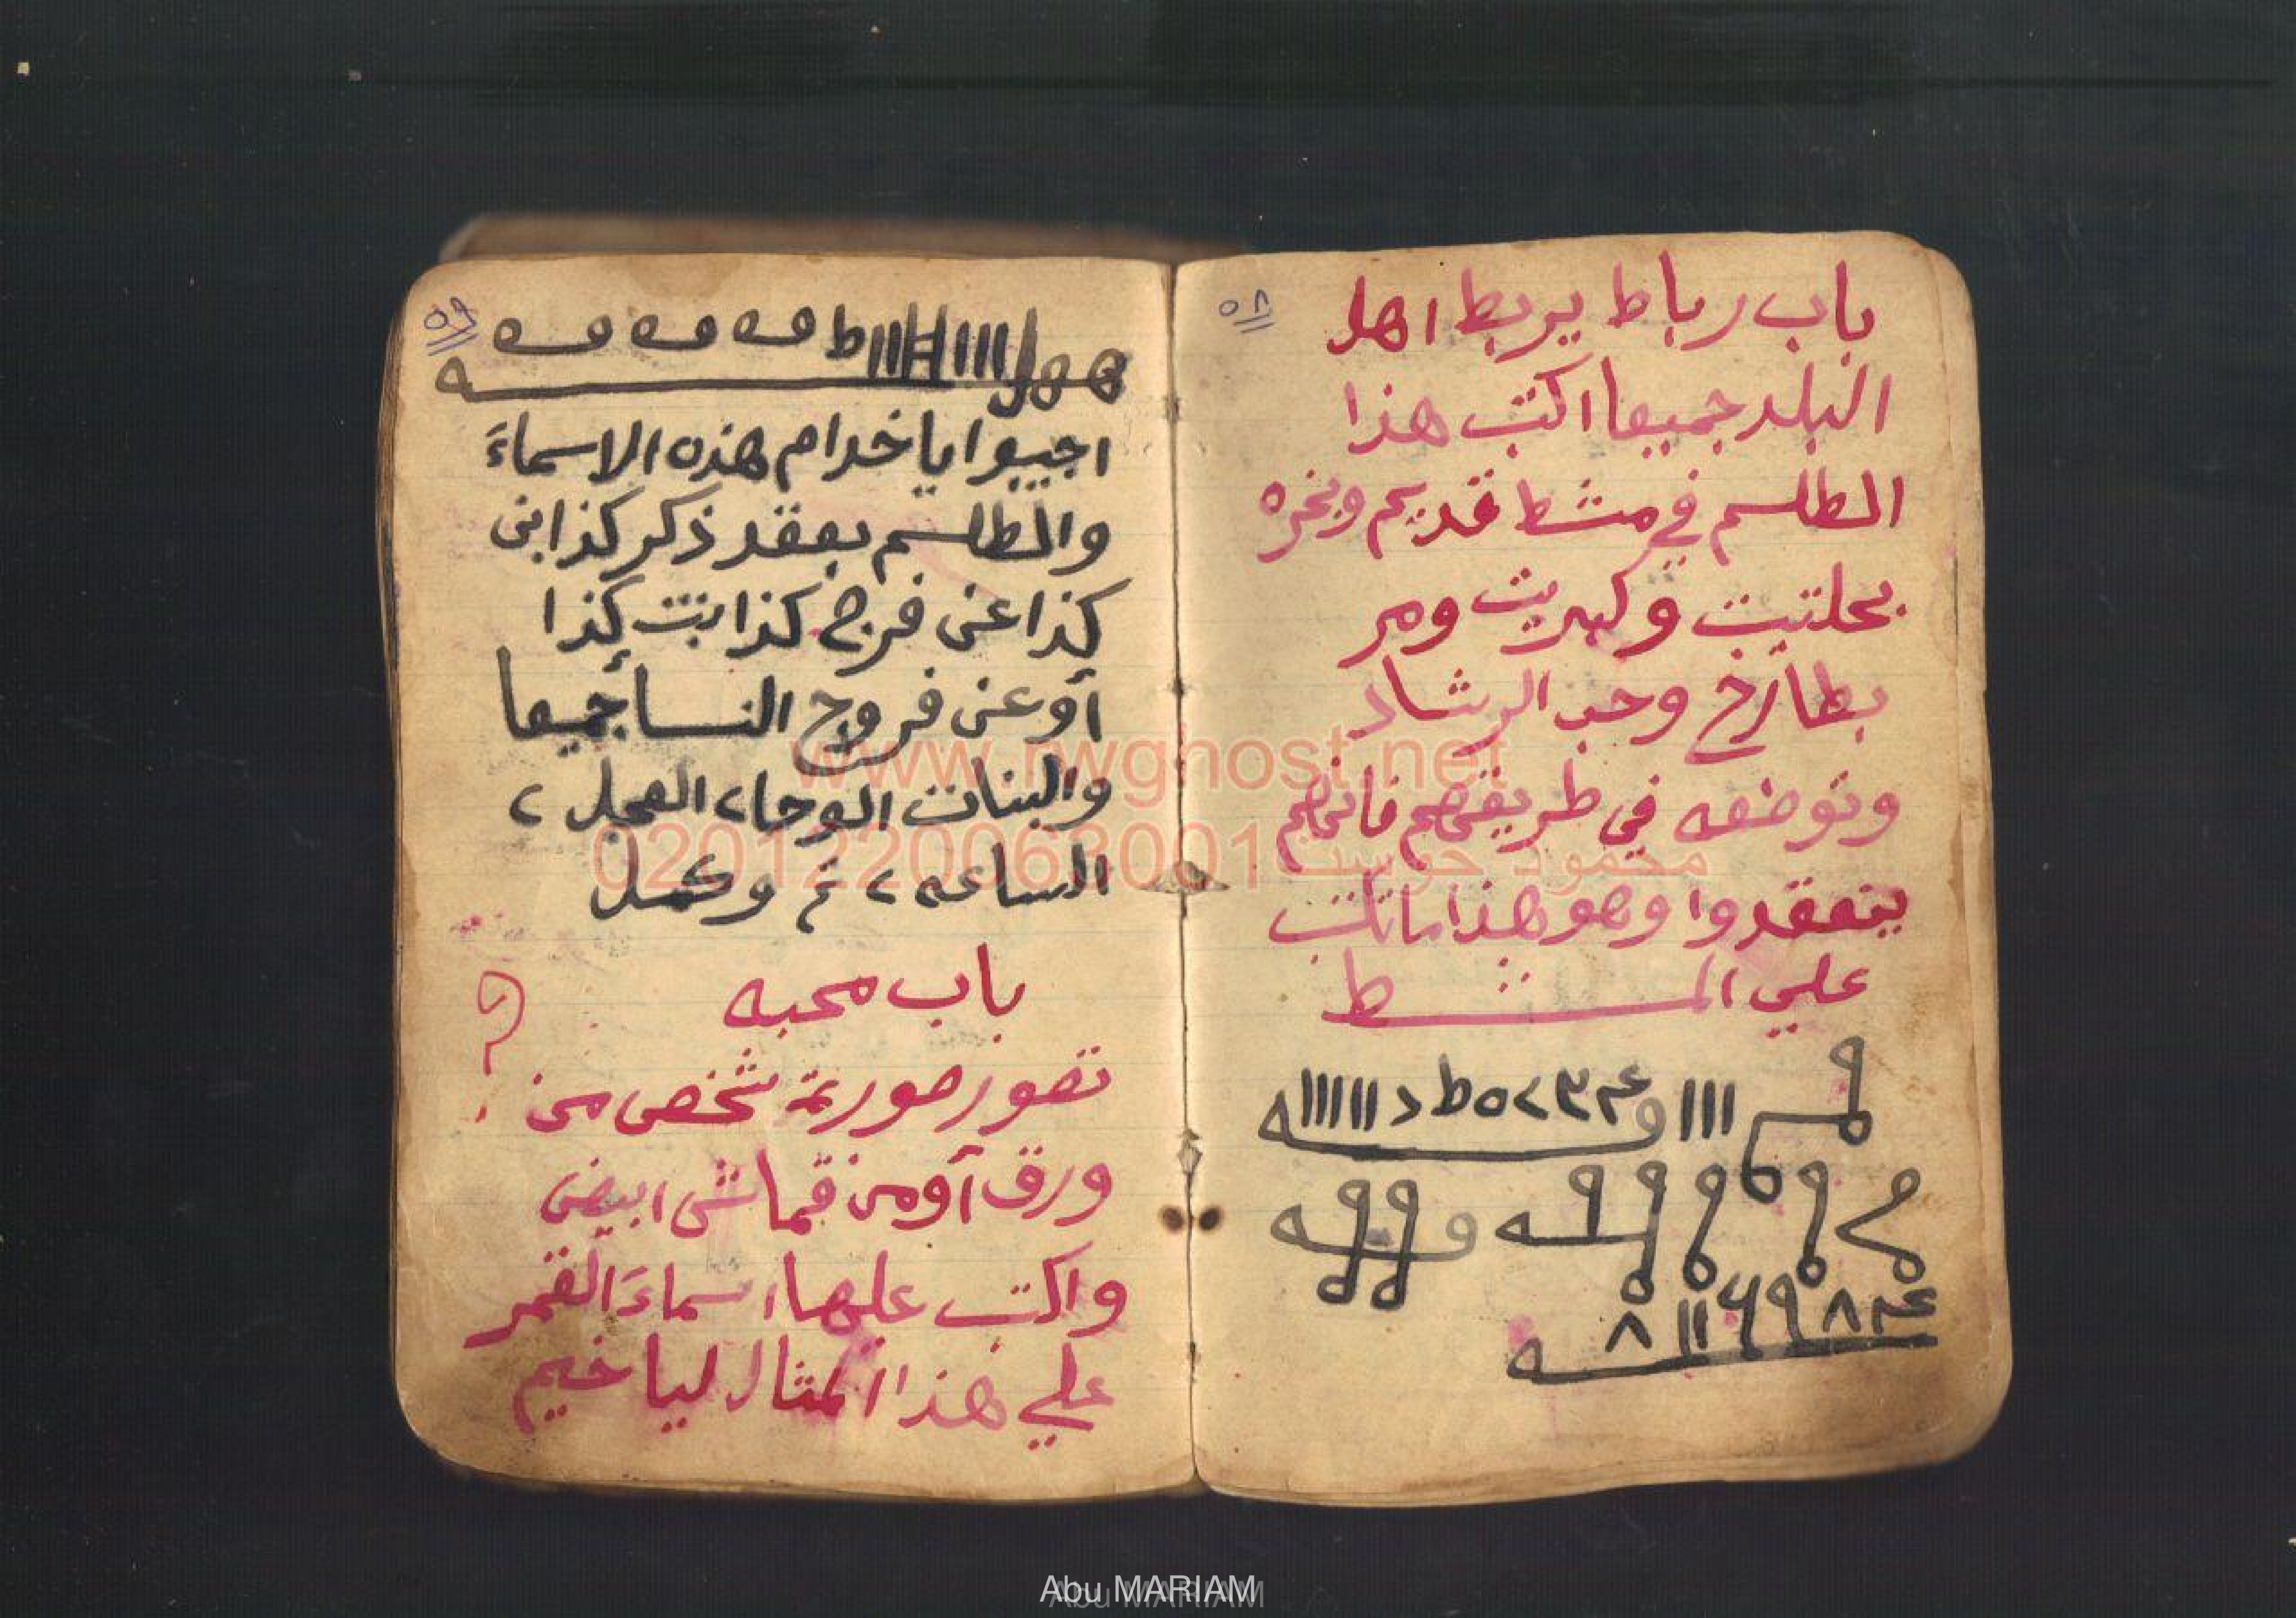 ٥٨
باب رباط يربط اهل
البلد جميعا اكتب هذا
الطلسم في مشط قديم وبخره
بحلتيت وكبريت ومر
بطارخ وحب الرشاد
وتوضعه في طريقهم فانهم
ينعقدوا وهو هذا ماتكتب
علي المشط
٥٩
اجيبوا ياخدام هذه الاسماءَ
والطلسم بعقد ذكر كذا ابن
كذا عن فرج كذا بنت كذا
أو عن فروج النسا جميعا
والبنات الوحا٢ العجل ٢
الساعه ٢ تم وكمل
باب محبه
تصور صورة شخص من
ورق أو من قماش ابيض
واكتب عليها اسماءَ القمر
علي هذا المثال لياخيم
www.rwghost.net
محمود جوست 0201220063001
Abu MARIAM